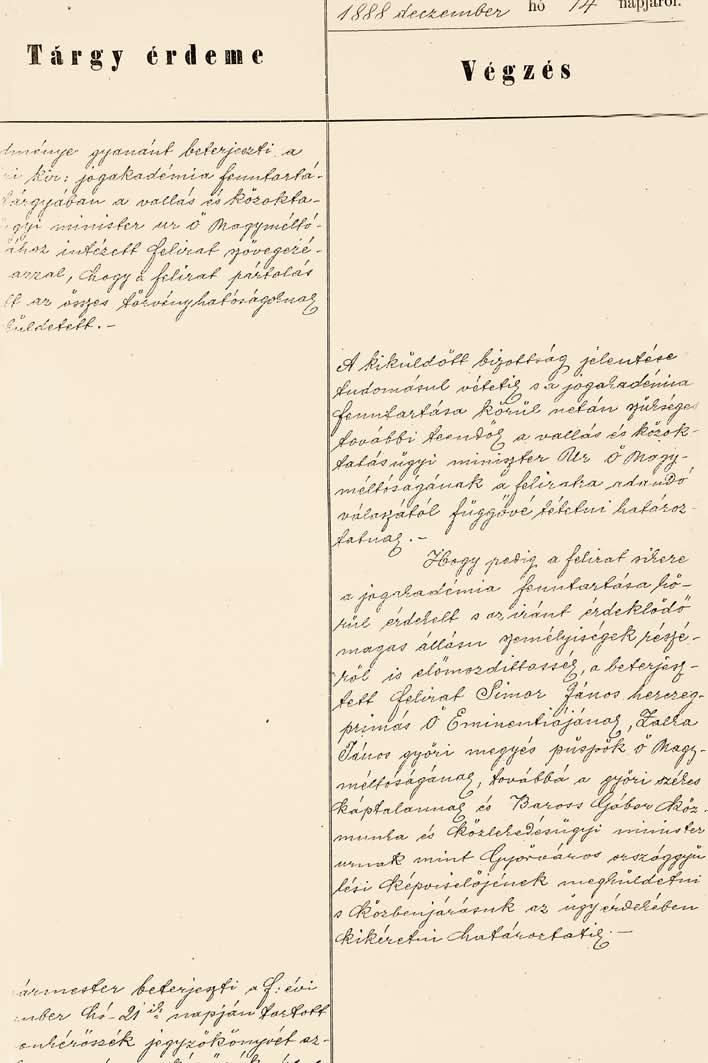 1888 deczember hó 14 napjáról.
Tárgy érdeme
Végzés
gyanánt beterjeszti a
kir: jogakadémia fenntartá-
tárgyában a vallás és közokta-
gyi minister ur Ő Magymélto-
intézett felirat szövegezé-
azzal, hogy a felirat pártolás
tt az összes törvényhatóságoknak
küldetett. –
A kiküldött bizottság jelentése
tudomásul vétetik s a jogakadémia
fenntartása körül netán szükséges
további teendők a vallás és közok-
tatásügyi miniszter Ur Ő Nagy-
méltóságának a feliratra adandó
válaszától függővé tétetni határoz-
tatnak. –
Hogy pedig a felirat sikere
a jogakadémia fenntartása kö-
rül érdekelt s az iránt érdeklődő
magas állásu személyiségek részé-
ről is előmozdittassék, a beterjesz-
tett felirat Simor János herczeg-
primás Ő Eminentiájának, Zalka
János győri megyés püspök ő Nagy-
méltóságának, továbbá a győri székes
káptalannak és Baross Gábor köz-
munka és közlekedésügyi minister
urnak mint Győrváros országgyü-
lési képviselőjének megküldetni
s közbenjárásuk az ügy érdekében
kikéretni határoztatik. –
ármester beterjeszti a f: évi
mber hó 21 ik napján tartott
jegyzőkönyvét az-